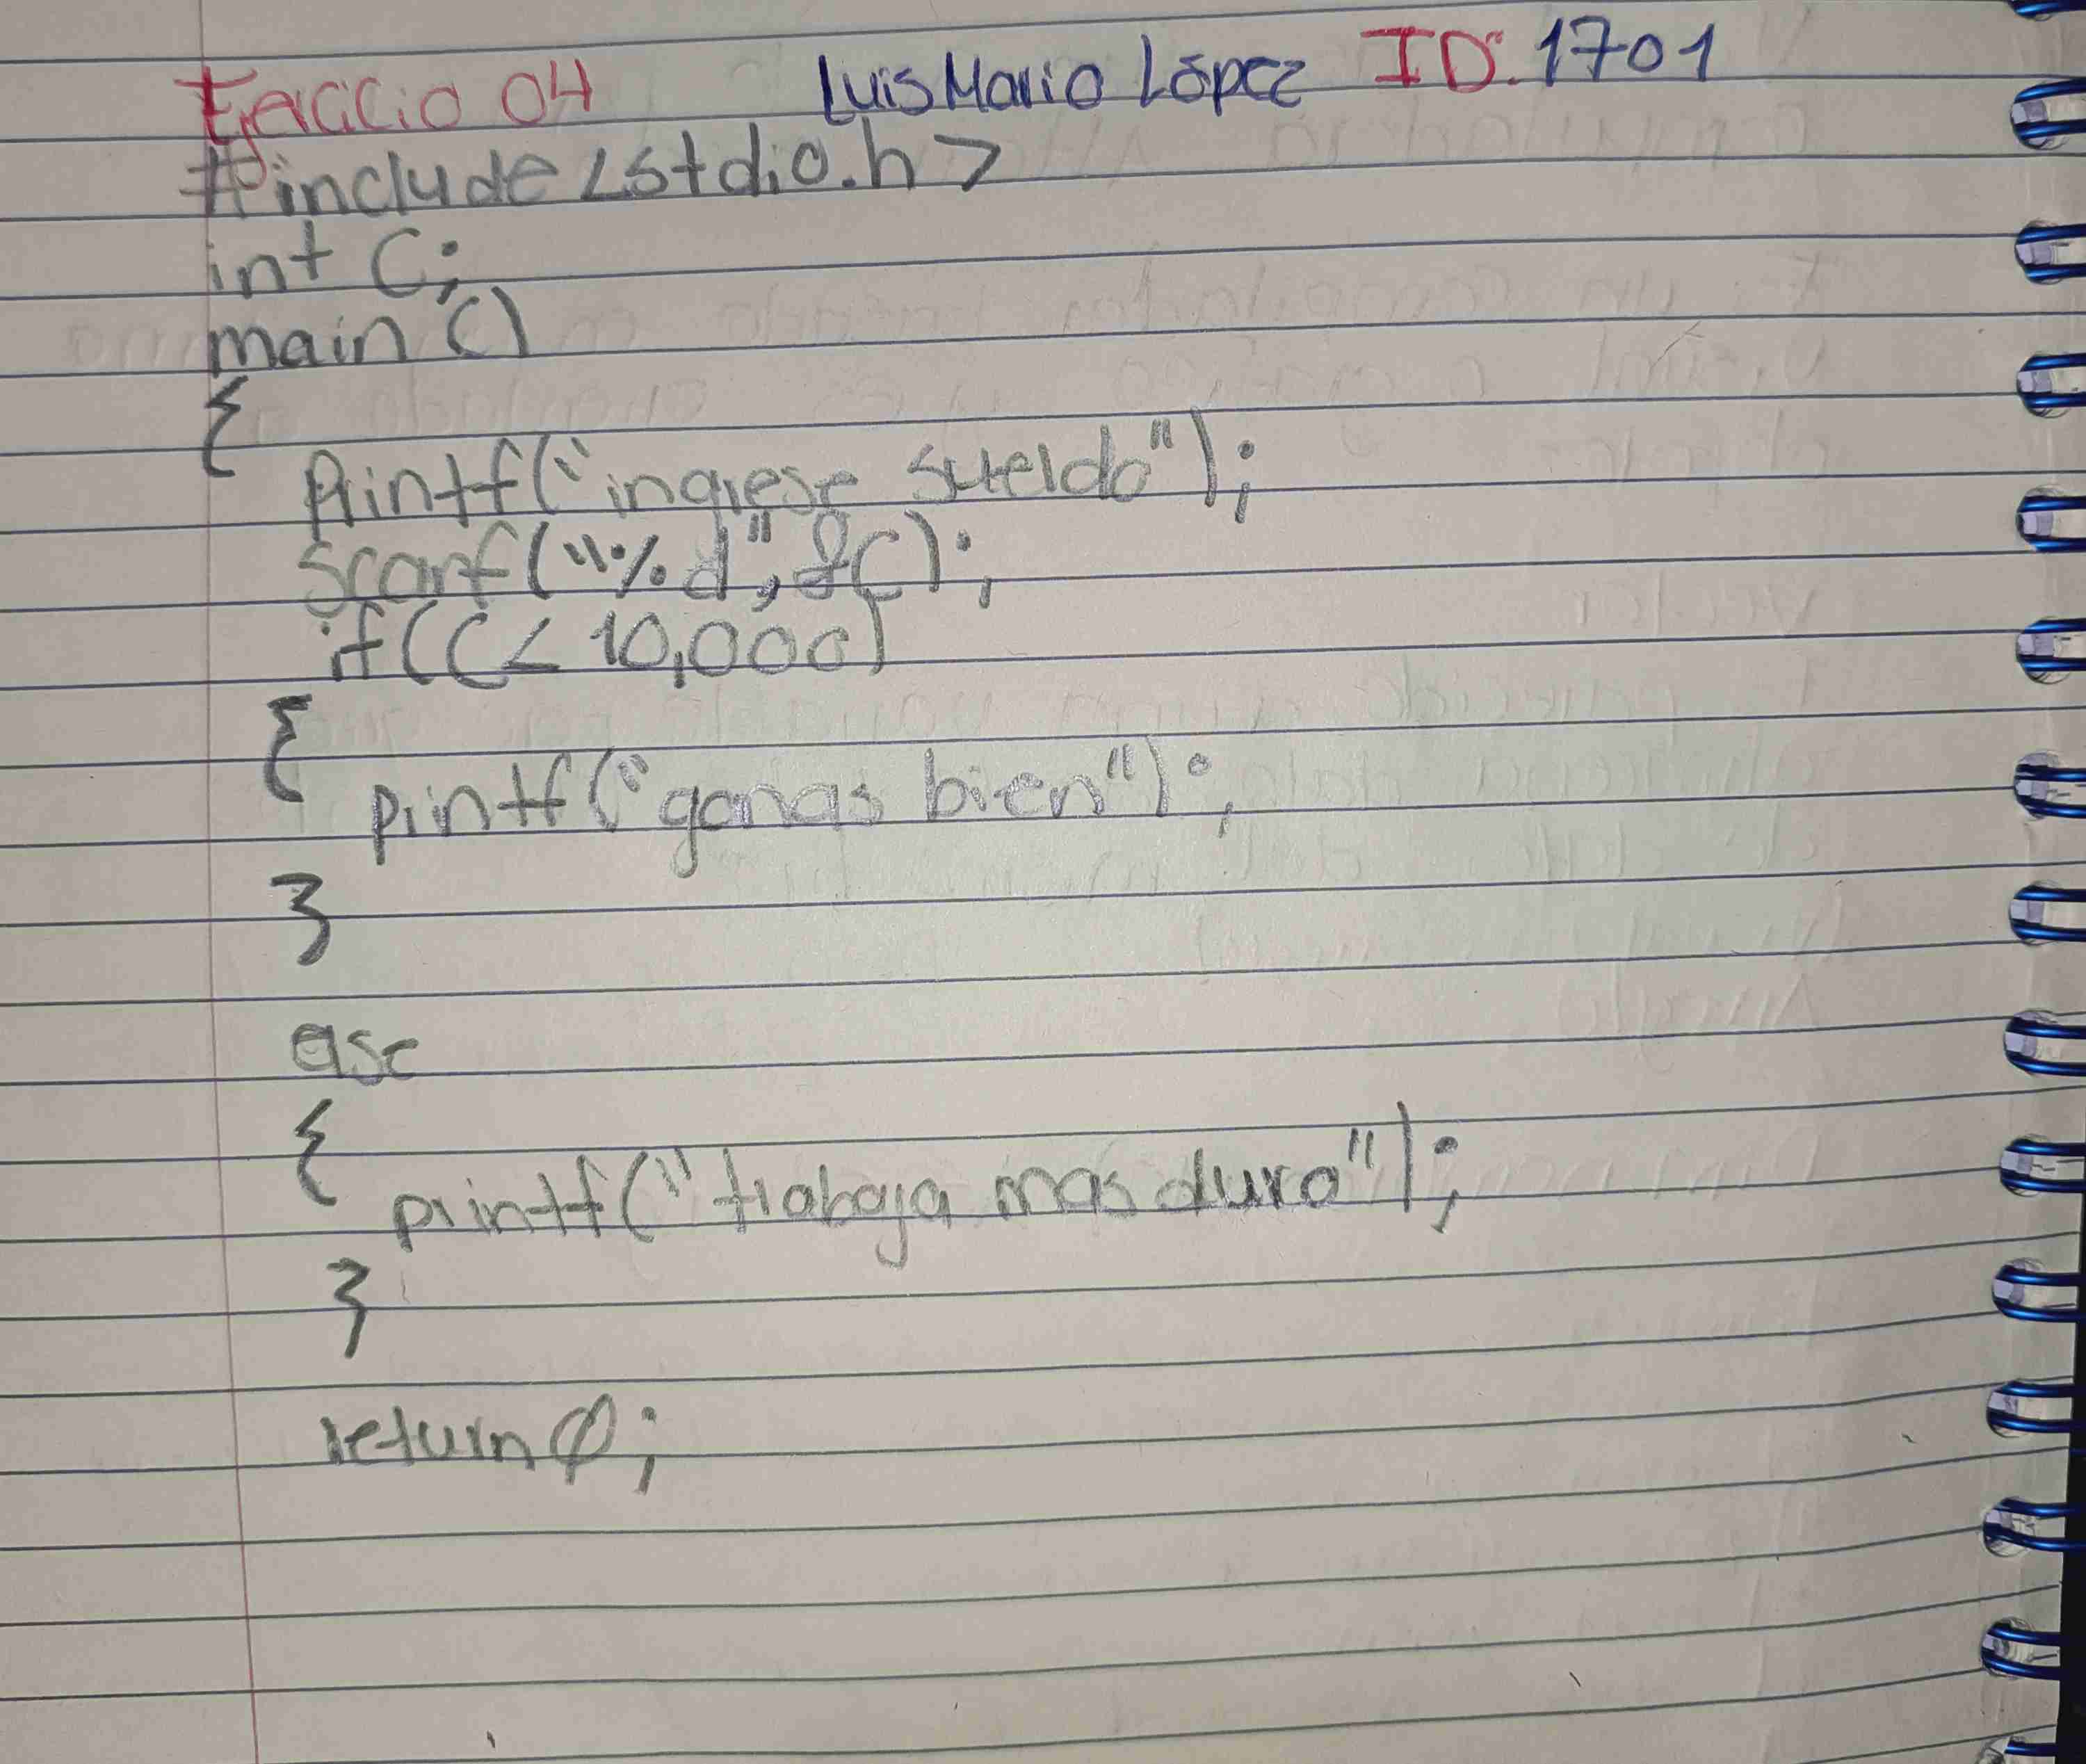 Ejercicio 04 Luis Mario López ID. 1701
#include <stdio.h>
int C;
main ()
{
Printf("ingrese sueldo");
scanf("%d",&C);
if(C < 10,000)
{
printf("ganas bien");
}
else
{
printf("trabaja mas duro");
}
return 0;